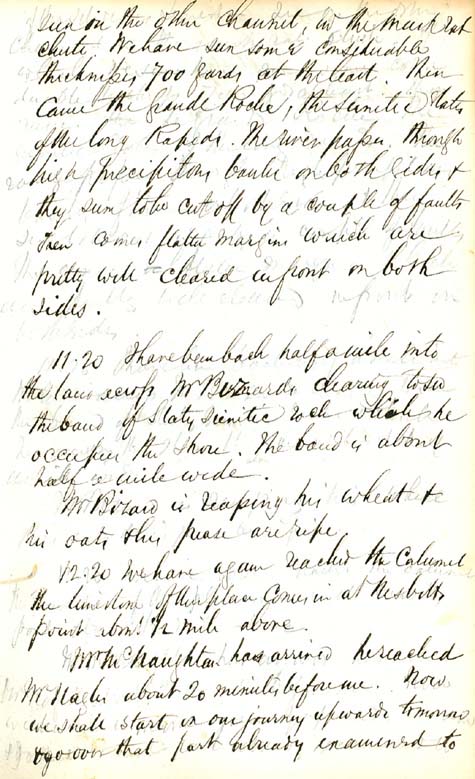 seen in the other Channil, in the Musk rat
chute. We have seen some & considerable
thickness 700 yards at the least. Then
came the Grande Roche, the sienitic slates
of the long Rapids. The river passes through
high precipitous banks on both sides &
they seem to be cut off by a couple of faults
Then comes flatter margins which are
pretty well cleared in front on both
sides.
11.20 I have been back half a mile into
the land across Mr Bizard's clearing to see
the band of slaty sienitic rock which he
occupies the shore. The band is about
half a mile wide.
Mr Bizard is reaping his wheat &
his oats & his pease are ripe
12.20 We have again reached the Calumet
the limestone of the place comes in at Nesbitts
point about ½ mile above.
Mr McNaughton has arrived he reached
Mr about 20 minutes before me. Now
we shall start on our journey upwards tomorrow
& go over that part already examined to